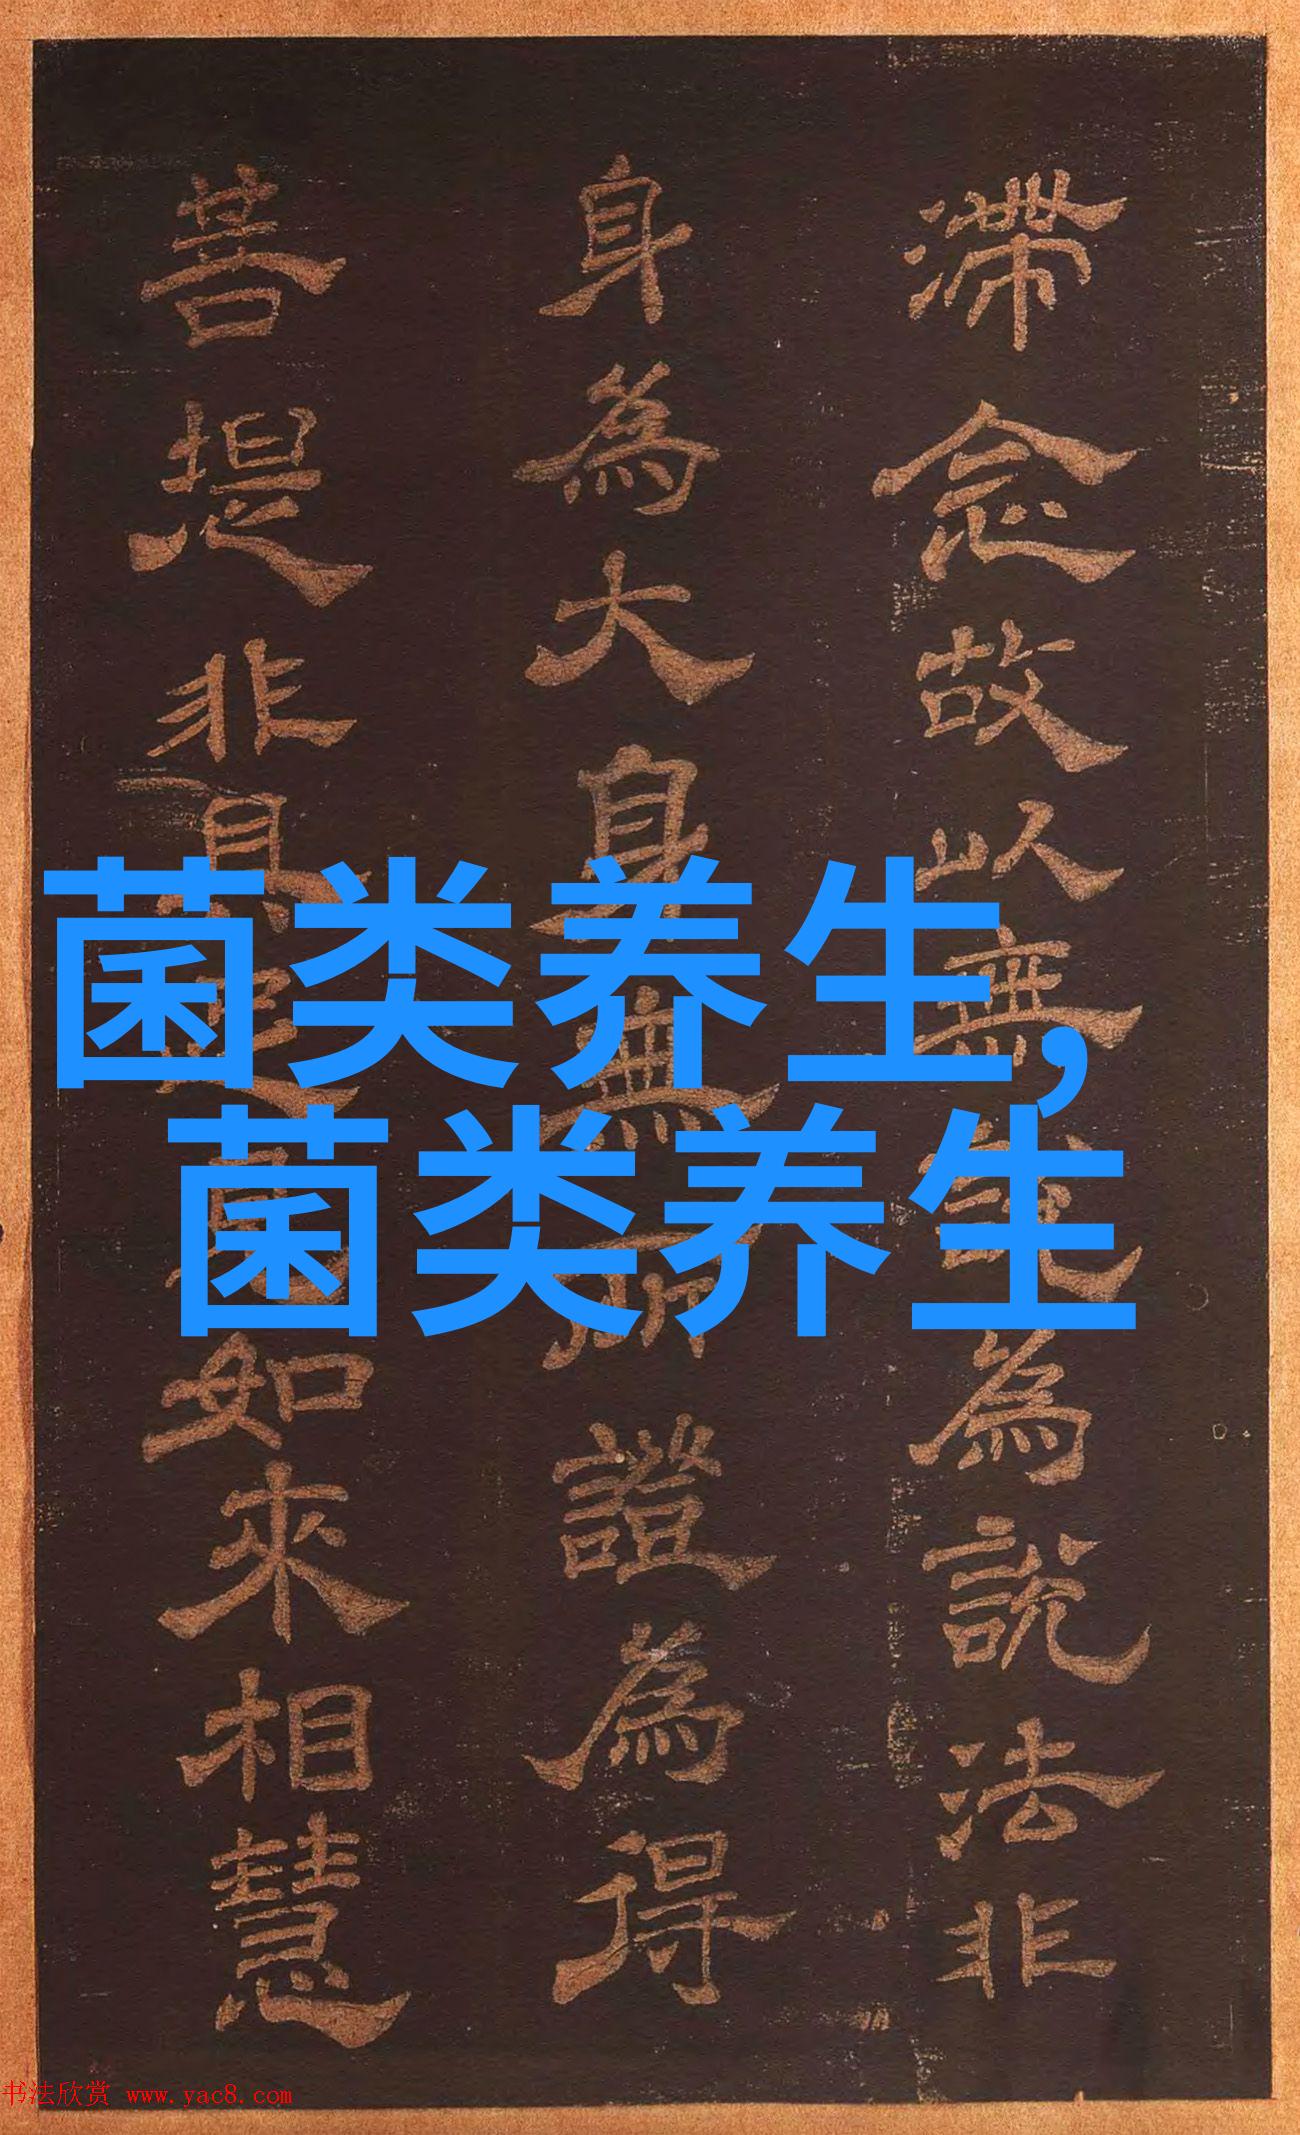 滯念故以無為說法非
身為大身無所證為得
菩提非具如來相慧
菌类养生,
菌类养生
书法欣赏 www.yac8.com